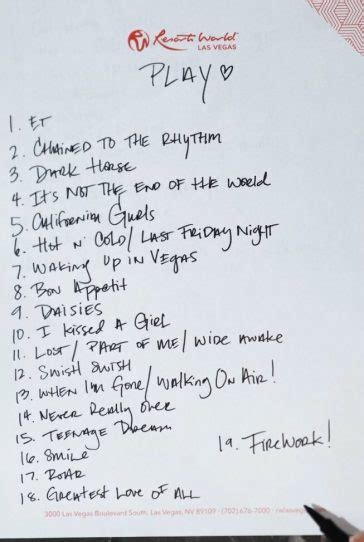 Resorts World
LAS VEGAS
PLAY ♡
1. ET
2. CHAINED TO THE RHYTHM
3. DARK HORSE
4. IT'S NOT THE END OF THE WORLD
5. California Gurls
6. HOT N' COLD / LAST FRIDAY NIGHT
7. WAKING UP IN VEGAS
8. BON APPETIT
9. DAISIES
10. I KISSED A GIRL
11. LOST / PART OF ME / WIDE AWAKE
12. SWISH SWISH
13. WHEN I'M GONE / WALKING ON AIR!
14. NEVER REALLY OVER
15. TEENAGE DREAM
16. SMILE
17. ROAR
18. GREATEST LOVE OF ALL
19. FIREWORK!
3000 Las Vegas Boulevard South, Las Vegas, NV 89109 · (702) 676-7000 ·